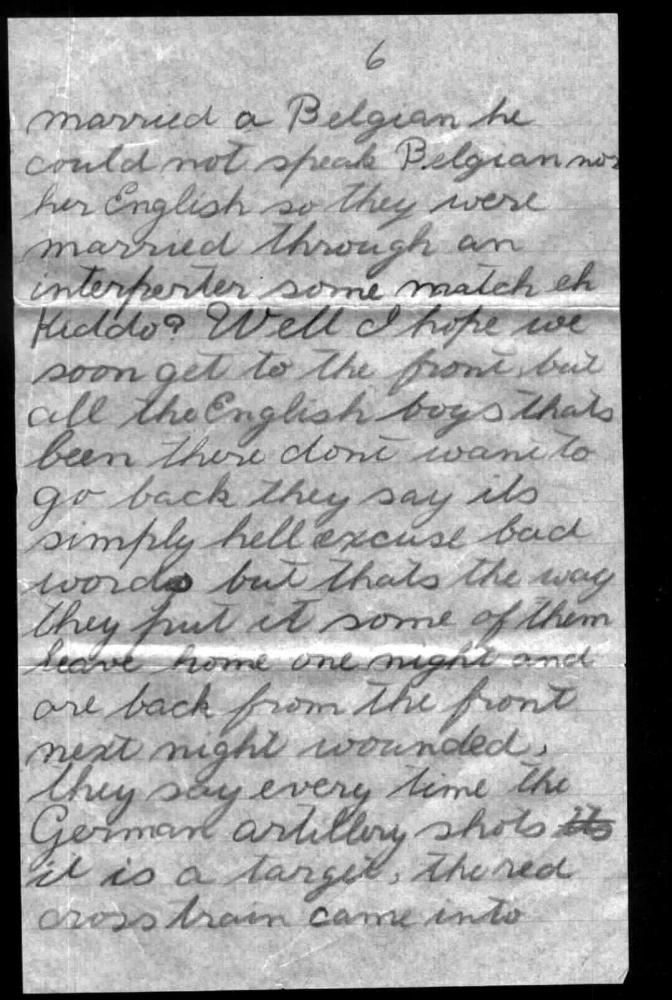 6
married a Belgian he
could not speak Belgian nor
her English so they were
married through an
interperter some match eh
Kiddo? Well I hope we
soon get to the front, but
all the English boys thats
been there dont want to
go back they say its
simply hell excuse bad
words but thats the way
they put it some of them
leave home one night and
are back from the front
next night wounded,
they say every time the
German artillery shots its
it is a target, the red
cross train came into